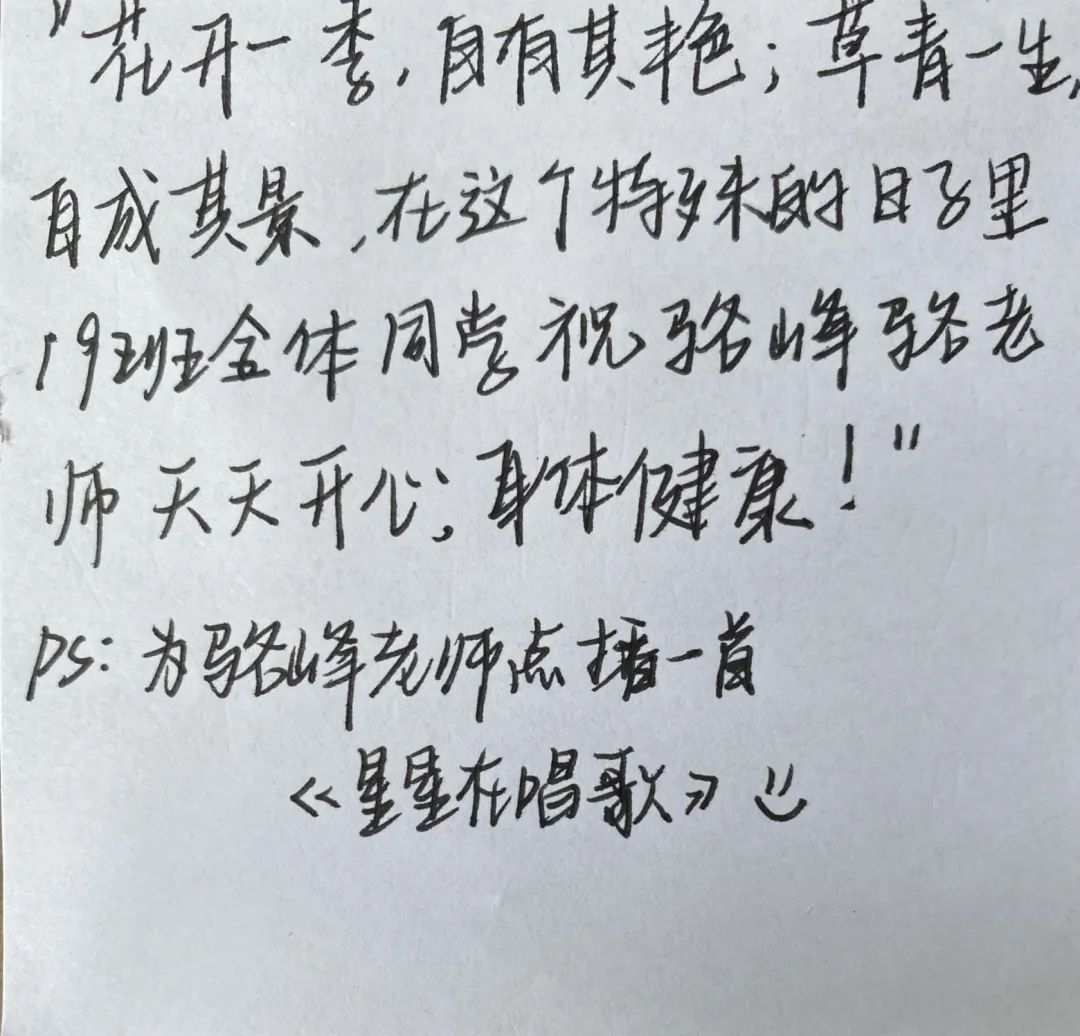 "花开一季,自有其艳;草青一生,
自成其景,在这个特殊的日子里
19班全体同学祝骆峰骆老
师天天开心,身体健康!"
PS:为骆峰老师点播一首
《星星在唱歌》